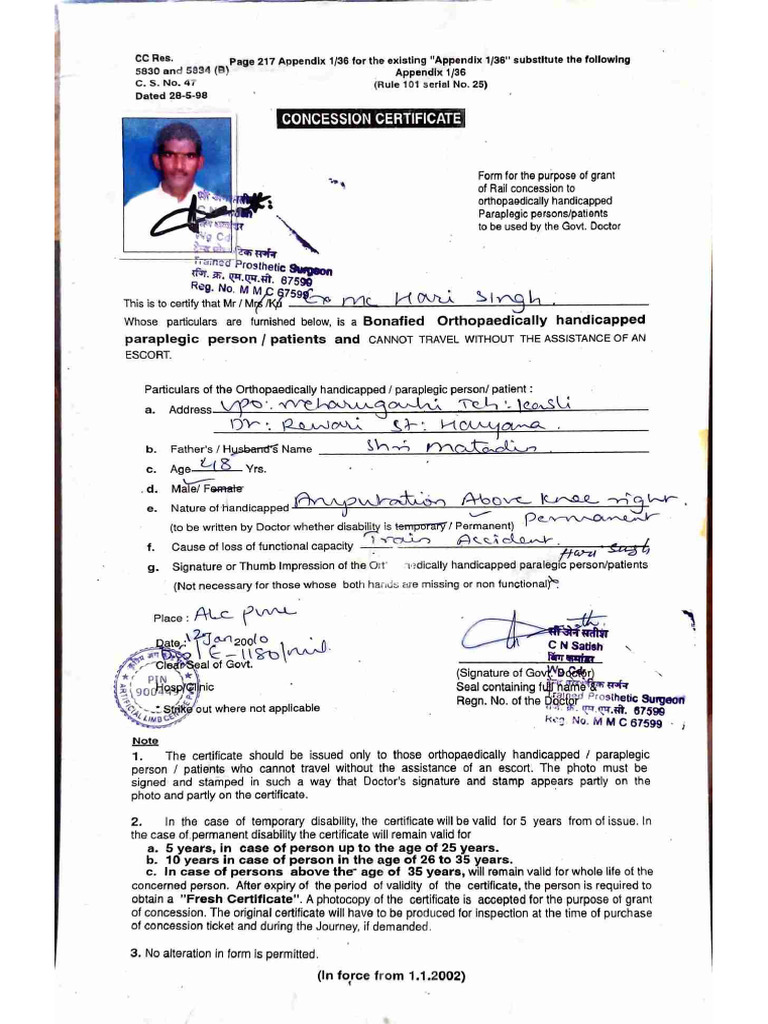 CC Res.
5830 and 5834 (B)
C. S. No. 47
Dated 28-5-98
Page 217 Appendix 1/36 for the existing "Appendix 1/36" substitute the following
Appendix 1/36
(Rule 101 serial No. 25)
CONCESSION CERTIFICATE
Form for the purpose of grant
of Rail concession to
orthopaedically handicapped
Paraplegic persons/patients
to be used by the Govt. Doctor
Trained Prosthetic Surgeon
रजि. क्र. एम.एम.सी. 67599
Reg. No. M M C 67599
This is to certify that Mr / Mrs /Ku Ex MC Hari Singh.
Whose particulars are furnished below, is a Bonafied Orthopaedically handicapped
paraplegic person / patients and CANNOT TRAVEL WITHOUT THE ASSISTANCE OF AN
ESCORT.
Particulars of the Orthopaedically handicapped / paraplegic person/ patient :
a. Address Vpo: Meharugarhi Teh: Kosli
Dt: Rewari St: Haryana.
b. Father's / Husband's Name Shri Matadin
c. Age 48 Yrs.
d. Male/ Female
e. Nature of Handicapped Amputation Above Knee right.
(to be written by Doctor whether disability is temporary / Permanent) Permanent
f. Cause of loss of functional capacity Train Accident.
Hari Singh
g. Signature or Thumb Impression of the Orthopaedically handicapped paralegic person/patients
(Not necessary for those whose both hands are missing or non functional)
Place : ALC Pune
Date : 12 Jan 20010
E-1180/mil
Clear Seal of Govt.
Hosp/Clinic
Strike out where not applicable
PIN
900449
ARTIFICIAL LIMB CENTRE
सी एन सतीश
C N Satish
विंग कमांडर
Wg Cdr
(Signature of Govt. Doctor)
Seal containing full name &
Regn. No. of the Doctor
Trained Prosthetic Surgeon
रजि. क्र. एम.एम.सी. 67599
Reg. No. M M C 67599
Note
1. The certificate should be issued only to those orthopaedically handicapped / paraplegic
person / patients who cannot travel without the assistance of an escort. The photo must be
signed and stamped in such a way that Doctor's signature and stamp appears partly on the
photo and partly on the certificate.
2. In the case of temporary disability, the certificate will be valid for 5 years from of issue. In
the case of permanent disability the certificate will remain valid for
a. 5 years, in case of person up to the age of 25 years.
b. 10 years in case of person in the age of 26 to 35 years.
c. In case of persons above the age of 35 years, will remain valid for whole life of the
concerned person. After expiry of the period of validity of the certificate, the person is required to
obtain a "Fresh Certificate". A photocopy of the certificate is accepted for the purpose of grant
of concession. The original certificate will have to be produced for inspection at the time of purchase
of concession ticket and during the Journey, if demanded.
3. No alteration in form is permitted.
(In force from 1.1.2002)